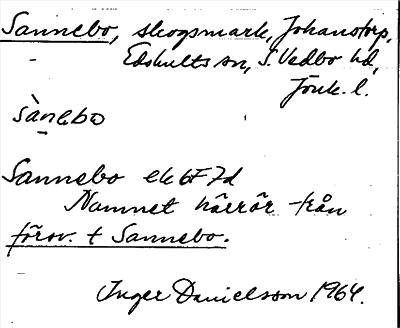 Sannebo, skogsmark, Johanstorp,
- Edshults sn, S. Vedbo hd,
Jönk. l.
sànebo
Sannebo ek 6F7d
Namnet härrör från
försv. t Sannebo.
Inger Danielsson 1964.